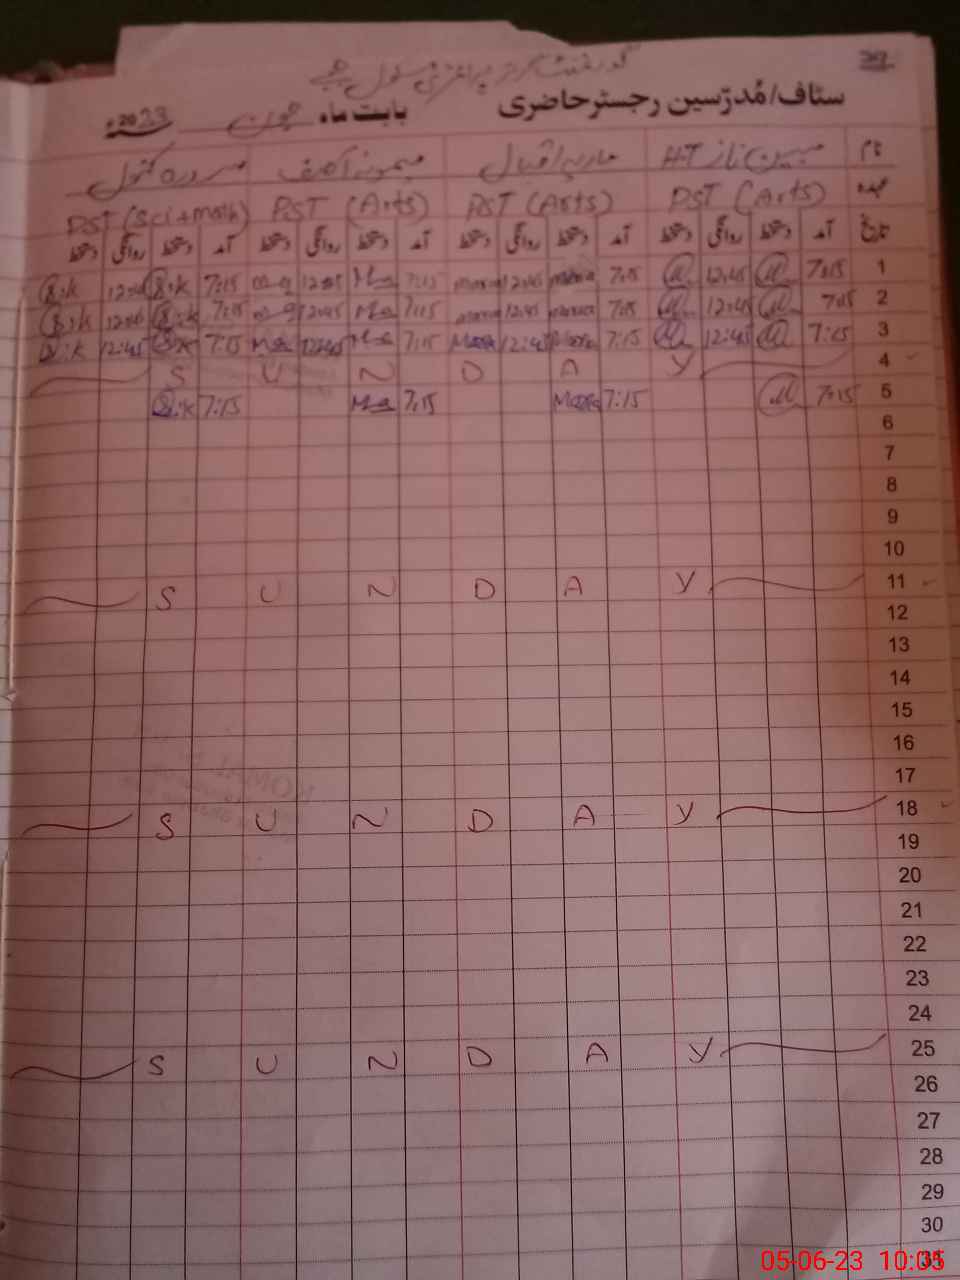 گورنمنٹ گرلز پرائمری سکول
سٹاف/مُدرّسین رجسٹر حاضری بابت ماہ جون 2023ء
نام مبین ناز H.T ماریہ اقبال میمونہ آصف سدرہ کنول
عہدہ PST (Arts) PST (Arts) PST (Arts) PST (Sci+math)
تاریخ آمد دستخط روانگی دستخط آمد دستخط روانگی دستخط آمد دستخط روانگی دستخط آمد دستخط روانگی دستخط
1 7:15 12:45 7:15 12:45 7:15 12:45 7:15 S.K 12:45 S.K
2 7:15 12:45 7:15 12:45 7:15 12:45 7:15 S.K 12:45 S.K
3 7:15 12:45 7:15 12:45 7:15 12:45 7:15 S.K 12:45 S.K
4 S U N D A Y
5 7:15 7:15 7:15 7:15 S.K
6
7
8
9
10
11 S U N D A Y
12
13
14
15
16
17
18 S U N D A Y
19
20
21
22
23
24
25 S U N D A Y
26
27
28
29
30
31
05-06-23 10:05